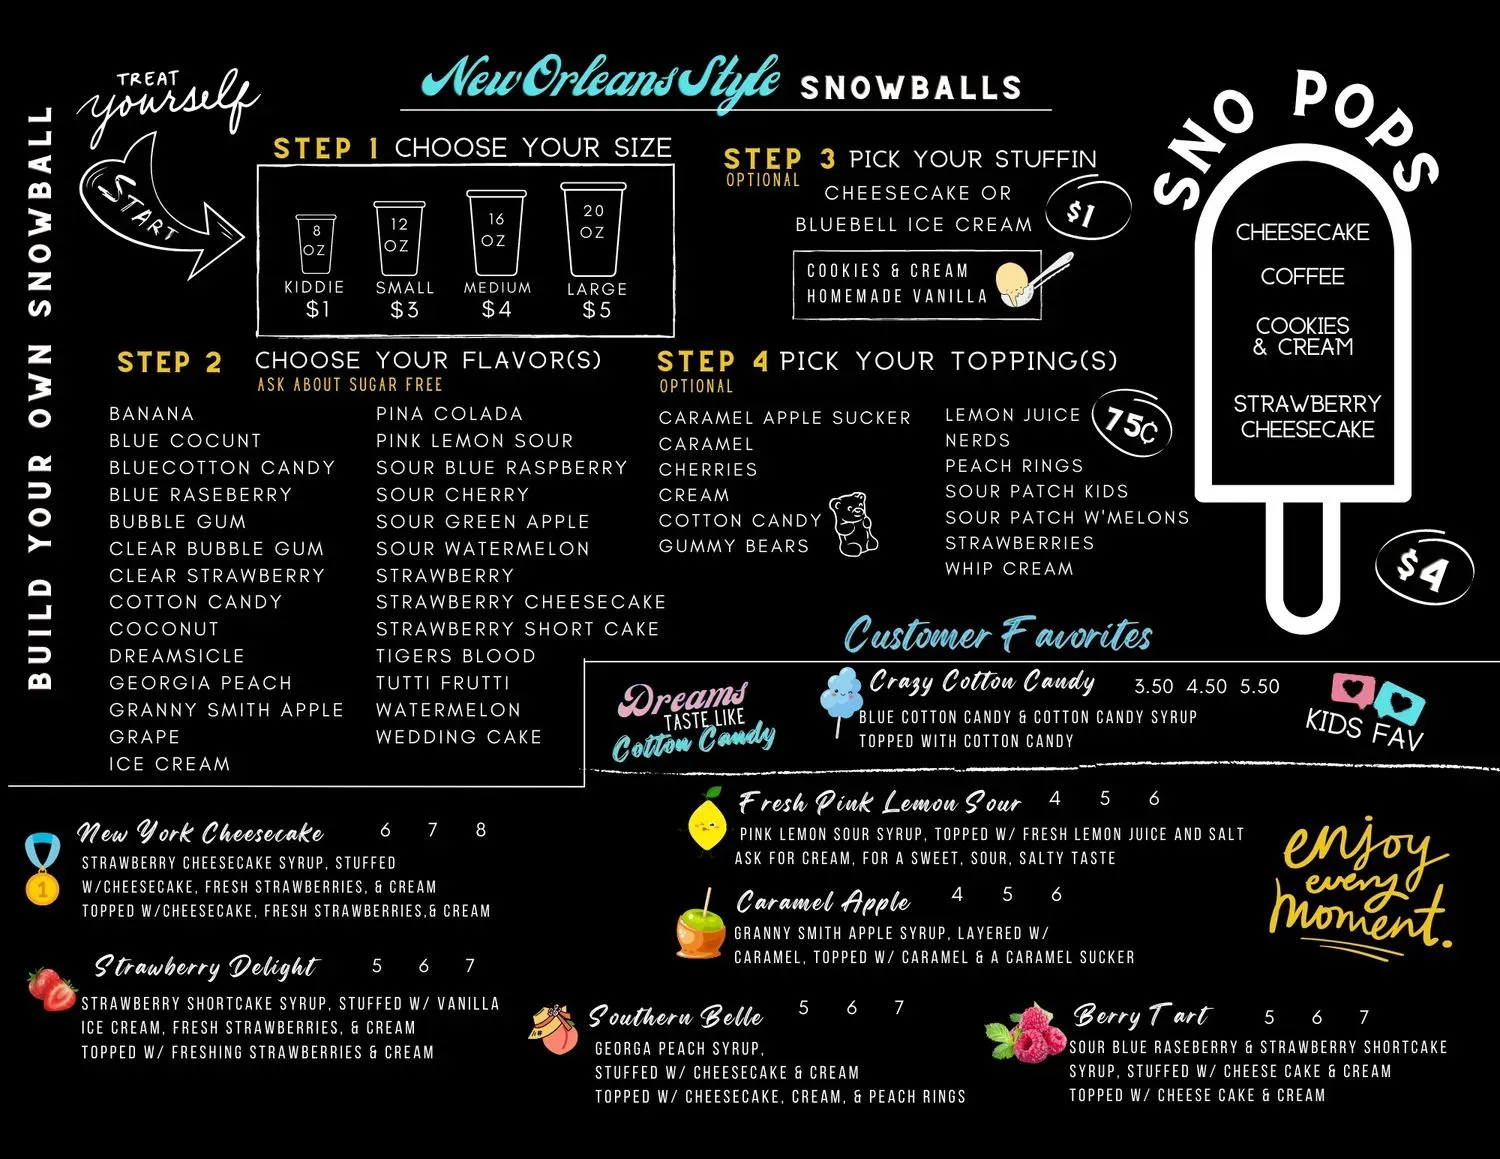 TREAT
yourself
START
BUILD YOUR OWN SNOWBALL
New Orleans Style SNOWBALLS
STEP 1 CHOOSE YOUR SIZE
8
OZ
KIDDIE
$1
12
OZ
SMALL
$3
16
OZ
MEDIUM
$4
20
OZ
LARGE
$5
STEP 2 CHOOSE YOUR FLAVOR(S)
ASK ABOUT SUGAR FREE
BANANA
BLUE COCUNT
BLUECOTTON CANDY
BLUE RASEBERRY
BUBBLE GUM
CLEAR BUBBLE GUM
CLEAR STRAWBERRY
COTTON CANDY
COCONUT
DREAMSICLE
GEORGIA PEACH
GRANNY SMITH APPLE
GRAPE
ICE CREAM
PINA COLADA
PINK LEMON SOUR
SOUR BLUE RASPBERRY
SOUR CHERRY
SOUR GREEN APPLE
SOUR WATERMELON
STRAWBERRY
STRAWBERRY CHEESECAKE
STRAWBERRY SHORT CAKE
TIGERS BLOOD
TUTTI FRUTTI
WATERMELON
WEDDING CAKE
STEP 3 PICK YOUR STUFFIN
OPTIONAL
CHEESECAKE OR
BLUEBELL ICE CREAM
$1
COOKIES & CREAM
HOMEMADE VANILLA
STEP 4 PICK YOUR TOPPING(S)
OPTIONAL
CARAMEL APPLE SUCKER
CARAMEL
CHERRIES
CREAM
COTTON CANDY
GUMMY BEARS
LEMON JUICE
NERDS
PEACH RINGS
SOUR PATCH KIDS
SOUR PATCH W'MELONS
STRAWBERRIES
WHIP CREAM
75¢
SNO POPS
CHEESECAKE
COFFEE
COOKIES
& CREAM
STRAWBERRY
CHEESECAKE
$4
Customer Favorites
Dreams
TASTE LIKE
Cotton Candy
Crazy Cotton Candy 3.50 4.50 5.50
BLUE COTTON CANDY & COTTON CANDY SYRUP
TOPPED WITH COTTON CANDY
KIDS FAV
New York Cheesecake 6 7 8
1
STRAWBERRY CHEESECAKE SYRUP, STUFFED
W/CHEESECAKE, FRESH STRAWBERRIES, & CREAM
TOPPED W/CHEESECAKE, FRESH STRAWBERRIES,& CREAM
Strawberry Delight 5 6 7
STRAWBERRY SHORTCAKE SYRUP, STUFFED W/ VANILLA
ICE CREAM, FRESH STRAWBERRIES, & CREAM
TOPPED W/ FRESHING STRAWBERRIES & CREAM
Fresh Pink Lemon Sour 4 5 6
PINK LEMON SOUR SYRUP, TOPPED W/ FRESH LEMON JUICE AND SALT
ASK FOR CREAM, FOR A SWEET, SOUR, SALTY TASTE
Caramel Apple 4 5 6
GRANNY SMITH APPLE SYRUP, LAYERED W/
CARAMEL, TOPPED W/ CARAMEL & A CARAMEL SUCKER
enjoy
every
moment.
Southern Belle 5 6 7
GEORGA PEACH SYRUP,
STUFFED W/ CHEESECAKE & CREAM
TOPPED W/ CHEESECAKE, CREAM, & PEACH RINGS
Berry Tart 5 6 7
SOUR BLUE RASEBERRY & STRAWBERRY SHORTCAKE
SYRUP, STUFFED W/ CHEESE CAKE & CREAM
TOPPED W/ CHEESE CAKE & CREAM